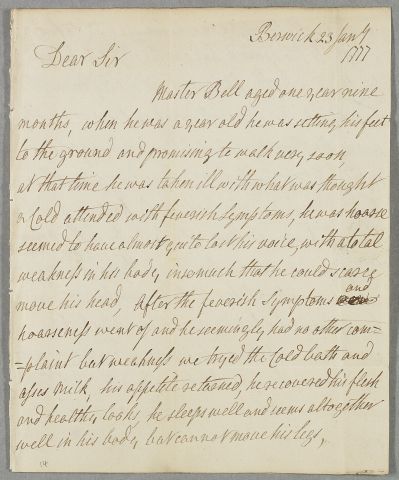 Berwick 23 Jany
1777
Dear Sir
Master Bell aged one year nine
months, when he was a year old he was setting his feet
to the ground and promising to walk very soon,
at that time he was taken ill with what was thought
a Cold attended with feverish Symptoms, he was hoarse
seemed to have almost quite lost his voice, with a total
weakness in his body insomuch that he could scarce
move his head, after the feverish Symptoms and
hoarseness went of and he seemingly had no other com=
=plaint but weakness we tryed the Cold bath and
asses milk, his appetite returned, he recovered his flesh
and healthy looks, he sleeps well and seems altogether
well in his body but cannot move his legs,